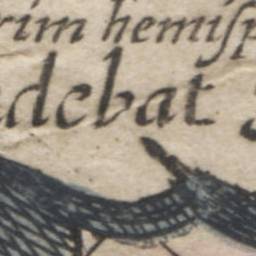 rim hemisp
debat